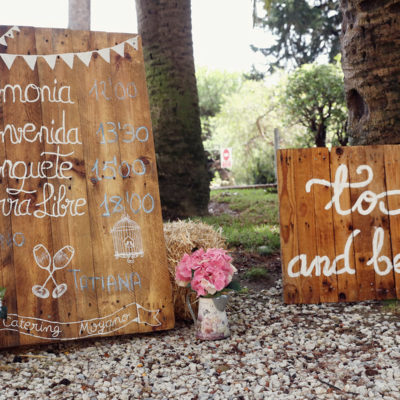 emonia 12'00
nvenida 13'30
nquete 15'00
rra Libre 18'00
TATIANA
Catering Moyano
to
and be